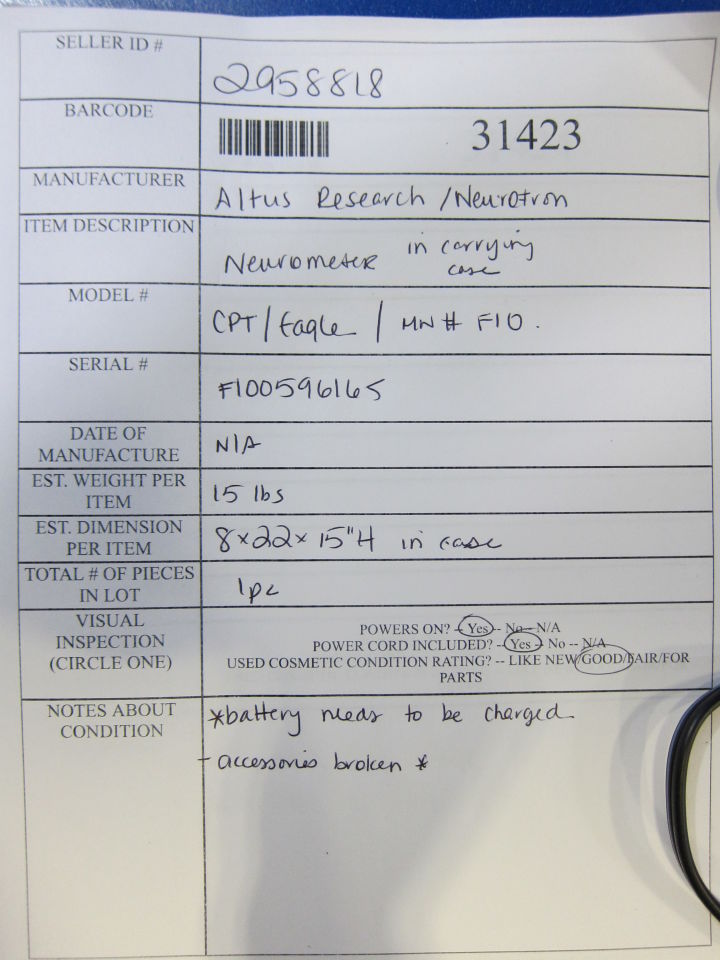 SELLER ID #
2958818
BARCODE
31423
MANUFACTURER
Altus Research / Neurotron
ITEM DESCRIPTION
Neurometer in carrying
case
MODEL #
CPT / Eagle / MN # F10.
SERIAL #
F100596165
DATE OF
MANUFACTURE
N/A
EST. WEIGHT PER
ITEM
15 lbs
EST. DIMENSION
PER ITEM
8x22x15"H in case
TOTAL # OF PIECES
IN LOT
1pc
VISUAL
INSPECTION
(CIRCLE ONE)
POWERS ON? -- Yes -- No -- N/A
POWER CORD INCLUDED? -- Yes -- No -- N/A
USED COSMETIC CONDITION RATING? -- LIKE NEW/GOOD/FAIR/FOR
PARTS
NOTES ABOUT
CONDITION
*battery needs to be charged
- accessories broken *